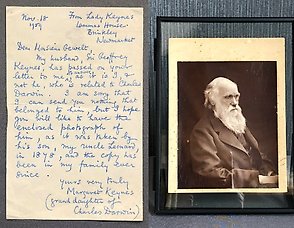 Nov. 18
1984
From Lady Keynes
House
Brinkley
Newmarket
Dear Monsieur
My husband, Sir Geoffrey
Keynes, has passed on your
letter to me, as it is I, &
not he, who is related to Charles
Darwin. I am sorry that
I can send you nothing that
belonged to him but I hope
you will like to have the
enclosed photograph of
him, as it was taken by
his son, my uncle Leonard,
in 1878, and the copy has
been in my family ever
since.
Yours very truly
Margaret Keynes
(granddaughter of
Charles Darwin)